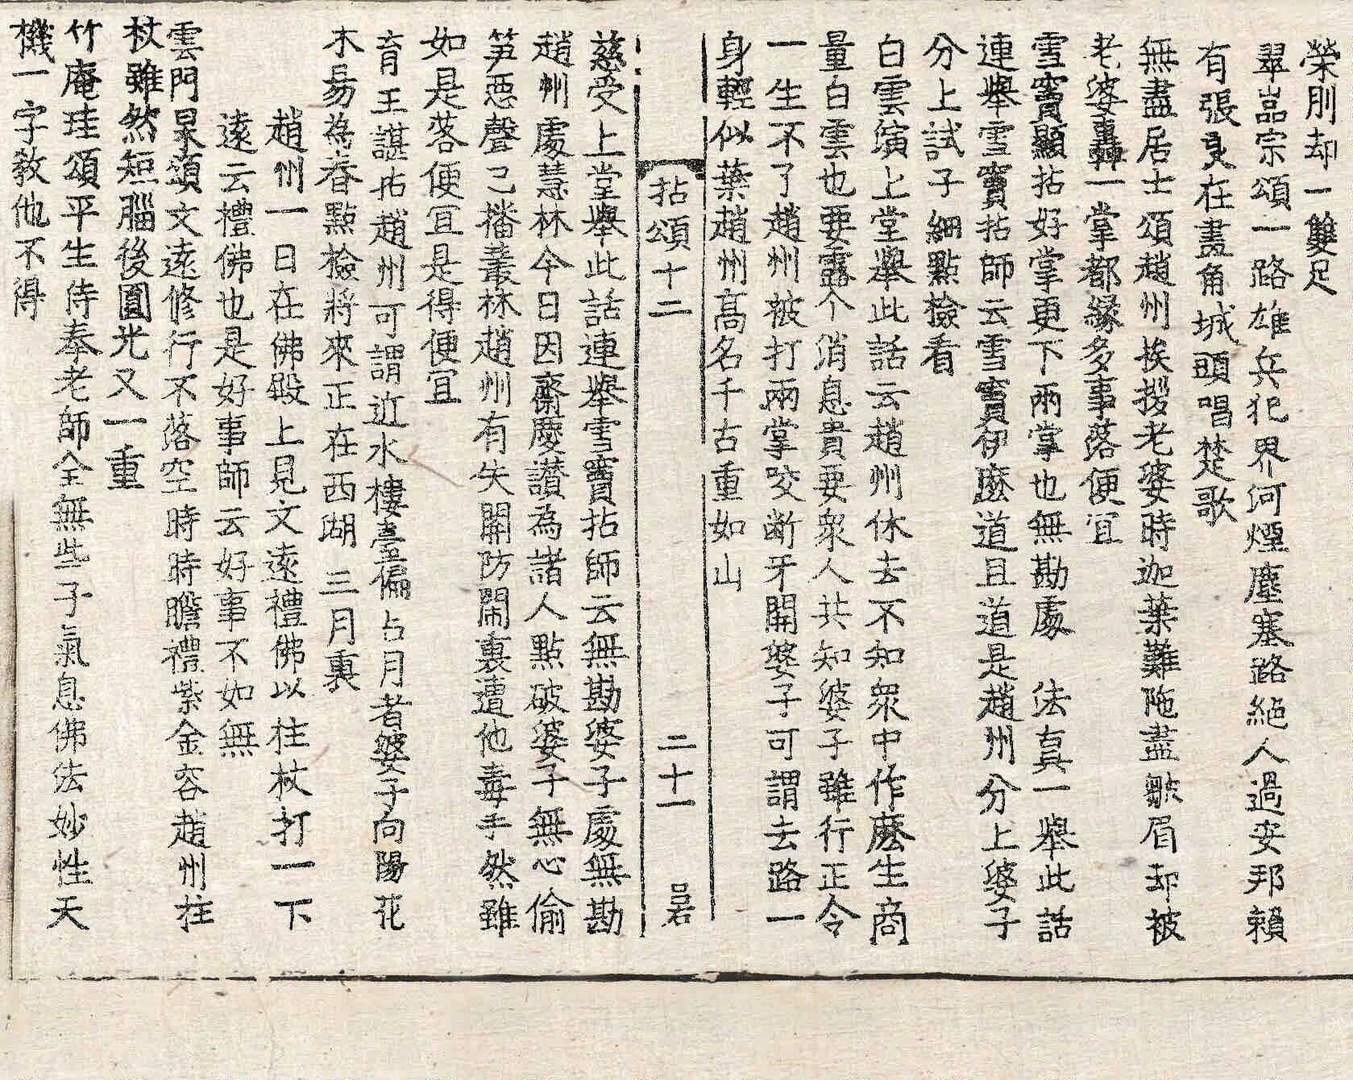 榮刖却一雙足
翠嵓宗頌一路雄兵犯界河煙塵塞路絕人過安邦賴
有張良在畫角城頭唱楚歌
無盡居士頌趙州挨拶老婆時迦葉難陁盡皺眉却被
老婆轟一掌都緣多事落便宜
雪竇顯拈好掌更下兩掌也無勘處 法真一舉此話
連舉雪竇拈師云雪竇伊麽道且道是趙州分上婆子
分上試子細點檢看
白雲演上堂舉此話云趙州休去不知衆中作麽生商
量白雲也要露个消息貴要衆人共知婆子雖行正令
一生不了趙州被打兩掌咬断牙關婆子可謂去路一
身輕似葉趙州高名千古重如山
拈頌十二 二十一 㠯
慈受上堂舉此話連舉雪竇拈師云無勘婆子處無勘
趙州處慧林今日因齋慶讃為諸人點破婆子無心偷
笋惡聲已播叢林趙州有失關防鬧裏遭他毒手然雖
如是落便宜是得便宜
育王諶拈趙州可謂近水樓臺偏占月者婆子向陽花
木易為春點檢將來正在西湖 三月裏
趙州一日在佛殿上見文遠禮佛以柱杖打一下
遠云禮佛也是好事師云好事不如無
雲門杲頌文遠修行不落空時時瞻禮紫金容趙州柱
杖雖然短腦後圓光又一重
竹庵珪頌平生侍奉老師全無些子氣息佛法妙性天
機一字教他不得